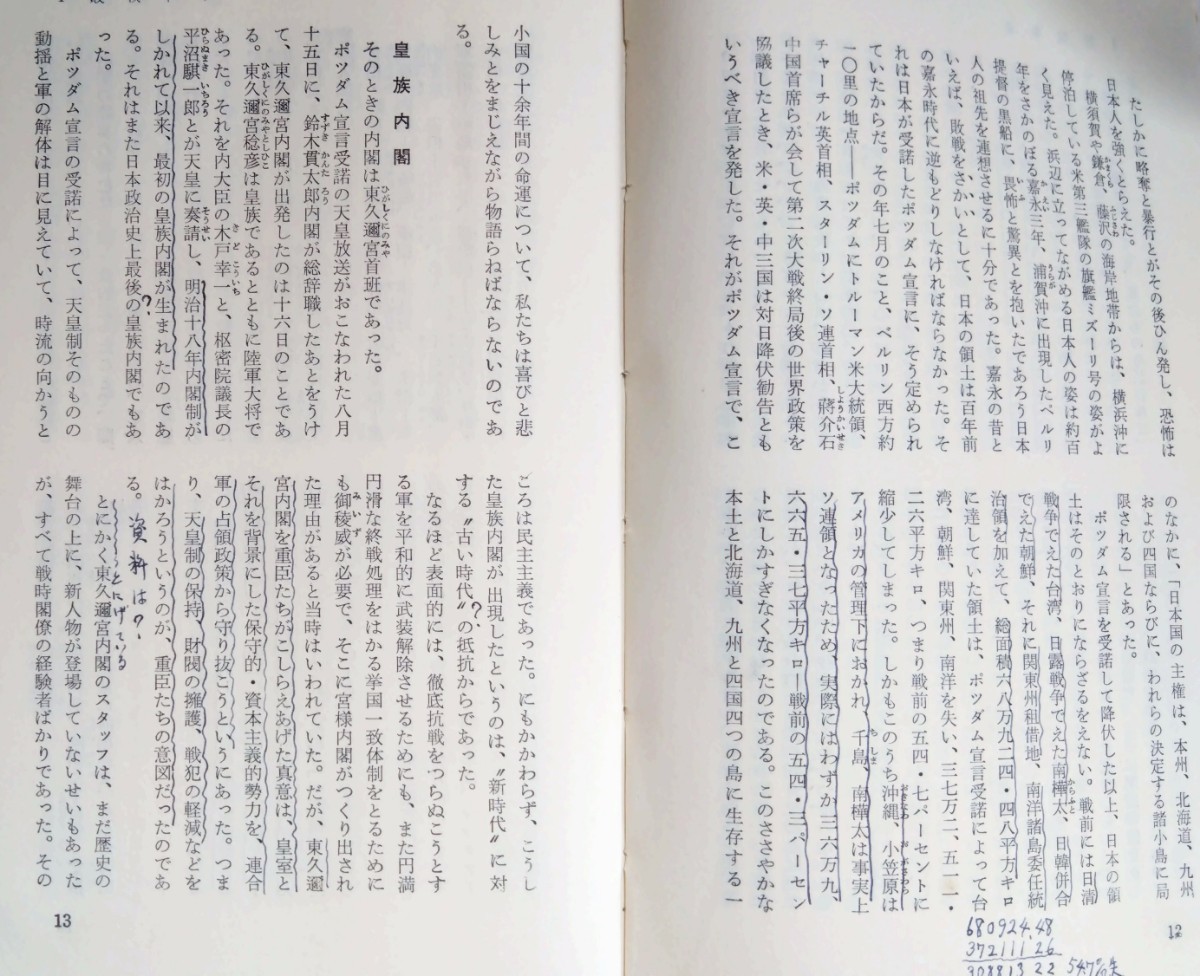 たしかに略奪と暴行とがその後ひん発し、恐怖は
日本人を強くとらえた。
横須賀や鎌倉、藤沢の海岸地帯からは、横浜沖に
停泊している米第三艦隊の旗艦ミズーリ号の姿がよ
く見えた。浜辺に立ってながめる日本人の姿は約百
年をさかのぼる嘉永三年、浦賀沖に出現したペルリ
提督の黒船に、畏怖と驚異とを抱いたであろう日本
人の祖先を連想させるに十分であった。嘉永の昔と
いえば、敗戦をさかいとして、日本の領土は百年前
の嘉永時代に逆もどりしなければならなかった。そ
れは日本が受諾したポツダム宣言に、そう定められ
ていたからだ。その年七月のこと、ベルリン西方約
一〇里の地点――ポツダムにトルーマン米大統領、
チャーチル英首相、スターリン・ソ連首相、蔣介石
中国首席らが会して第二次大戦終局後の世界政策を
協議したとき、米・英・中三国は対日降伏勧告とも
いうべき宣言を発した。それがポツダム宣言で、こ
のなかに、「日本国の主権は、本州、北海道、九州
および四国ならびに、われらの決定する諸小島に局
限される」とあった。
ポツダム宣言を受諾して降伏した以上、日本の領
土はそのとおりにならざるをえない。戦前には日清
戦争でえた台湾、日露戦争でえた南樺太、日韓併合
でえた朝鮮、それに関東州租借地、南洋諸島委任統
治領を加えて、総面積六八万九二四・四八平方キロ
に達していた領土は、ポツダム宣言受諾によって台
湾、朝鮮、関東州、南洋を失い、三七万二、五一一・
二六平方キロ、つまり戦前の五四・七パーセントに
縮少してしまった。しかもこのうち沖縄、小笠原は
アメリカの管理下におかれ、千島、南樺太は事実上
ソ連領となったため、実際にはわずか三六万九、
六六五・三七平方キロ―戦前の五四・三パーセン
トにしかすぎなくなったのである。このささやかな
本土と北海道、九州と四国四つの島に生存する一
12
680924.48
372111 26
308813 22 54.7%失
小国の十余年間の命運について、私たちは喜びと悲
しみとをまじえながら物語らねばならないのであ
る。
皇族内閣
そのときの内閣は東久邇宮首班であった。
ポツダム宣言受諾の天皇放送がおこなわれた八月
十五日に、鈴木貫太郎内閣が総辞職したあとをうけ
て、東久邇宮内閣が出発したのは十六日のことであ
る。東久邇宮稔彦は皇族であるとともに陸軍大将で
あった。それを内大臣の木戸幸一と、枢密院議長の
平沼騏一郎とが天皇に奏請し、明治十八年内閣制が
しかれて以来、最初の皇族内閣が生まれたのであ
る。それはまた日本政治史上最後の皇族内閣でもあ
った。
ポツダム宣言の受諾によって、天皇制そのものの
動揺と軍の解体は目に見えていて、時流の向かうと
ころは民主主義であった。にもかかわらず、こうし
た皇族内閣が出現したというのは、〝新時代〟に対
する〝古い時代〟の抵抗からであった。
なるほど表面的には、徹底抗戦をつらぬこうとす
る軍を平和的に武装解除させるためにも、また円満
円滑な終戦処理をはかる挙国一致体制をとるために
も御稜威が必要で、そこに宮様内閣がつくり出され
た理由があると当時はいわれていた。だが、東久邇
宮内閣を重臣たちがこしらえあげた真意は、皇室と
それを背景にした保守的・資本主義的勢力を、連合
軍の占領政策から守り抜こうというにあった。つま
り、天皇制の保持、財閥の擁護、戦犯の軽減などを
はかろうというのが、重臣たちの意図だったのであ
る。
資料は?
とにかく東久邇宮内閣のスタッフは、まだ歴史の
舞台の上に、新人物が登場していないせいもあった
が、すべて戦時閣僚の経験者ばかりであった。その
13